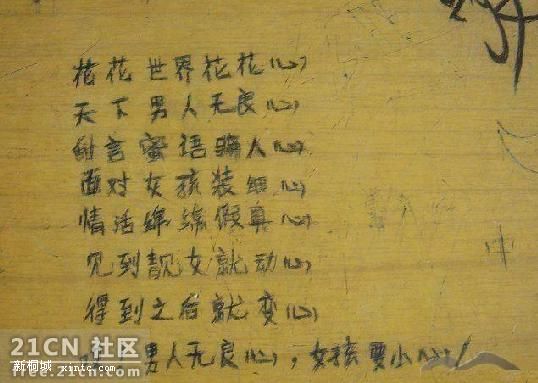 花花世界花花(心)
天下男人无良(心)
甜言蜜语骗人(心)
面对女孩装细(心)
情活绵绵假真(心)
见到靓女就动(心)
得到之后就变(心)
男人无良(心)，女孩要小(心)！
21CN 社区
free.21cn.com
新桐城 xintc.com